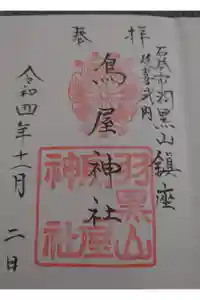 石巻市羽黒山鎮座
延喜式内
奉拝
鳥屋神社
令和四年十一月二日
羽黒山
鳥屋
神社